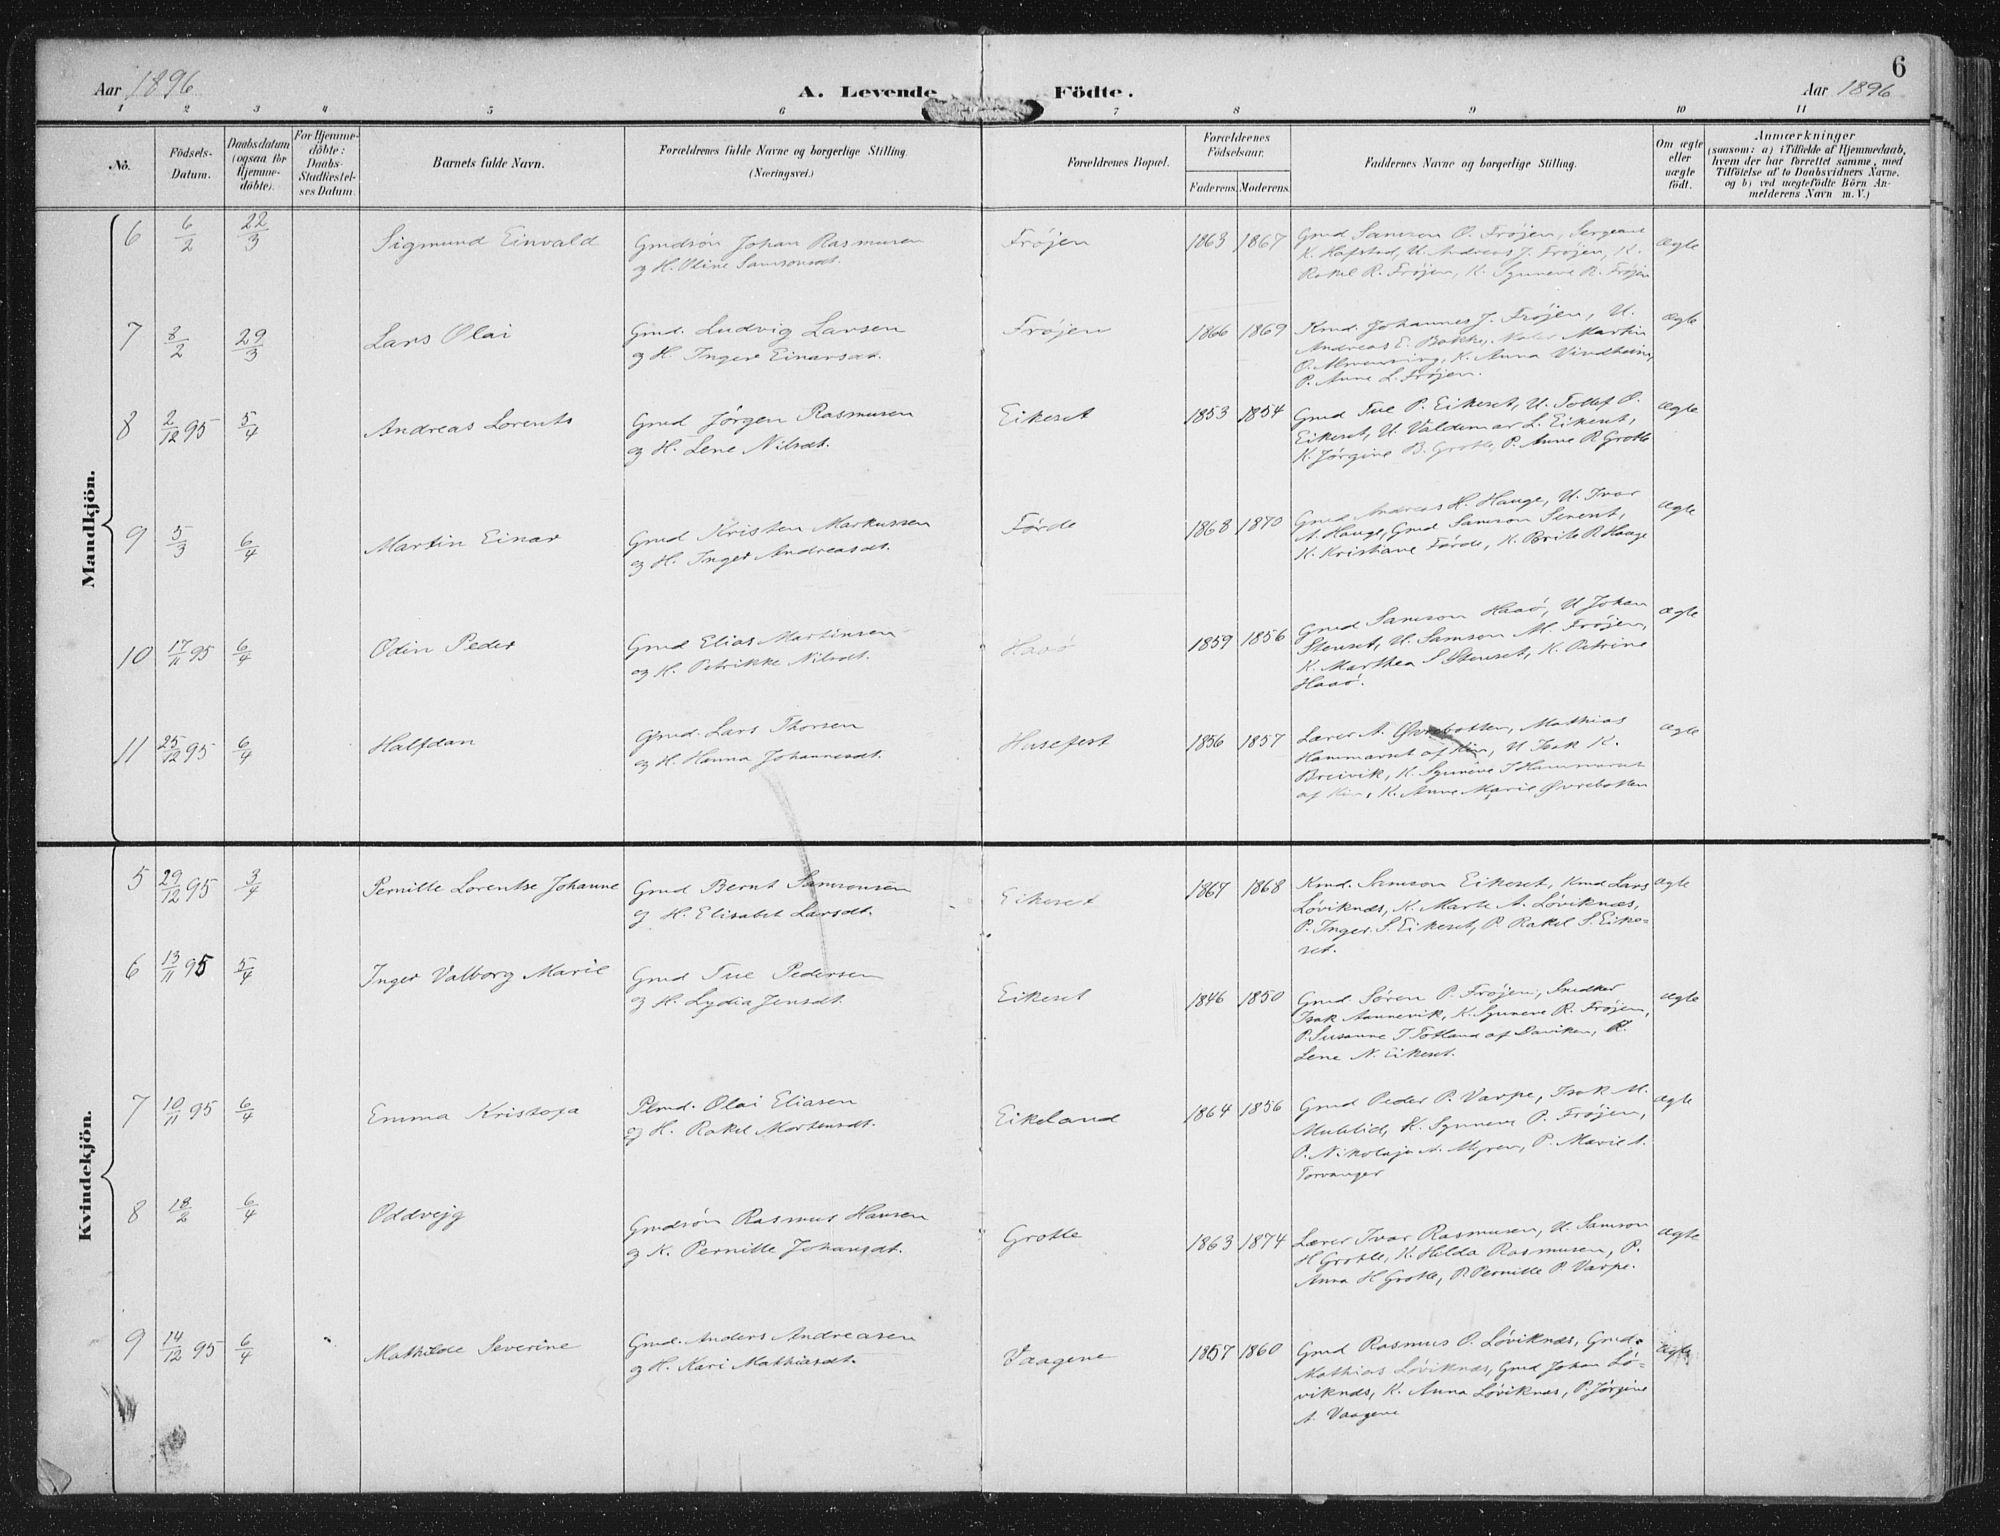 6
Aar 1896 A. Levende Födte. Aar 1896
1 2 3 4 5 6 7 8 9 10 11
Nō.
Födsels-
Datum.
Daabsdatum
(ogsaa for
Hjemme-
döbte).
For Hjemme-
döbte:
Daabs-
Stadfæstel-
ses Datum.
Barnets fulde Navn.
Forældrenes fulde Navne og borgerlige Stilling.
(Næringsvei.)
Forældrenes Bopæl.
Forældrenes
Födselsaar.
Faderens. Moderens.
Faddernes Navne og borgerlige Stilling.
Om ægte
eller
uægte
födt.
Anmærkninger
(saasom: a) i Tilfælde af Hjemmedaab,
hvem der har forrettet samme, med
Tilföielse af to Daabsvidners Navne.
og b) ved uægtefödte Börn An-
melderens Navn m. V.)
Mandkjön.
6 6/2 22/3 Sigmund Einvald
Gmdsön Johan Rasmusen
og H. Oline Samsonsdt.
Frøjen 1863 1867
Gmd Samson O. Frøjen, Sergeant
K. Hafstad, U. Andreas J. Frøjen, K.
Rakel R. Frøjen, K. Synneve R. Frøjen
ægte
7 8/2 29/3 Lars Olai
Gmd. Ludvig Larsen
og H. Inger Einarsdt.
Frøjen 1866 1869
Kmd. Johannes J. Frøjen, U.
Andreas E. Bakke, Maler Martin
O. K. Anna Vindheim,
P. Anne L. Frøjen.
ægte
8 2/12 95 5/4 Andreas Lorents
Gmd Jørgen Rasmusen
og H. Lene Nilsdt.
Eikeset 1853 1854
Gmd Tue P. Eikeset, U. Tollef O.
Eikeset, U. Valdemar L. Eikeset,
K. Jørgine B. Grotle, P. Anne R Grotle
ægte
9 5/3 6/4 Martin Einar
Gmd Kristen Markussen
og H. Inger Andreasdt.
Førde 1868 1870
Gmd Andreas H. Hauge, U. Ivar
A. Hauge, Gmd Samson
K. Kristiane Førde, K. Brite R Hauge
ægte
10 17/11 95 6/4 Odin Peder
Gmd Elias Martinsen
og H. Petrikke Nilsdt.
Haaö 1859 1856
Gmd Samson Haaö, U Johan
Stenset, U. Samson M. Frøjen,
K. Marthea S Stenset, K. Petrine
Haaö.
ægte
11 25/12 95 6/4 Halfdan
Gmd. Lars Thorsen
og H. Hanna Johannesdt.
Husefest 1856 1857
Lærer A. Øvrebotten, Mathias
Hammerset af Kin, U Isak K.
Breivik, K. Synneve J Hammerset
af Kin, K. Anne Marie Øvrebotten
ægte
Kvindekjön.
5 29/12 95 3/4 Pernille Lorentse Johanne
Gmd Bernt Samsonsen
og H. Elisabet Larsdt.
Eikeset 1867 1868
Kmd. Samson Eikeset, Kmd Lars
Løviknæs, K. Marte A. Løviknæs,
P. Inger S. Eikeset, P. Rakel S. Eike-
set.
ægte
6 13/11 95 5/4 Inger Valborg Marie
Gmd Tue Pedersen
og H. Lydia Jensdt.
Eikeset 1846 1850
Gmd. Søren P. Frøjen, Snedker
Isak Aannevik, K. Synneve R. Frøjen,
P. Susanne J Totland af Daviken, K.
Lene N. Eikeset.
ægte
7 10/11 95 6/4 Emma Kristofa
Plmd. Olai Eliasen
og H. Rakel Mortensdt.
Eikeland 1864 1856
Gmd Peder P. Varpe, Isak M.
Muhlid, K. Synneve P. Frøjen,
P. Nikolaja A. Myren, P. Marie A.
Torvanger
ægte
8 18/2 6/4 Oddvejg
Gmdsön Rasmus Hansen
og K. Pernille Johansdt.
Grotle 1863 1874
Lærer Ivar Rasmusen, U. Samson
H Grotle, K. Hilda Rasmusen, P.
Anna H Grotle, P. Pernille P. Varpe.
ægte
9 14/12 95 6/4 Mathilde Severine
Gmd. Anders Andreasen
og H. Kari Mathiasdt.
Vaagene 1857 1860
Gmd Rasmus O. Løviknæs, Gmd.
Mathias Løviknæs, Gmd Johan Lø-
viknæs, K. Anna Løviknæs, P. Jørgine
A. Vaagene
ægte